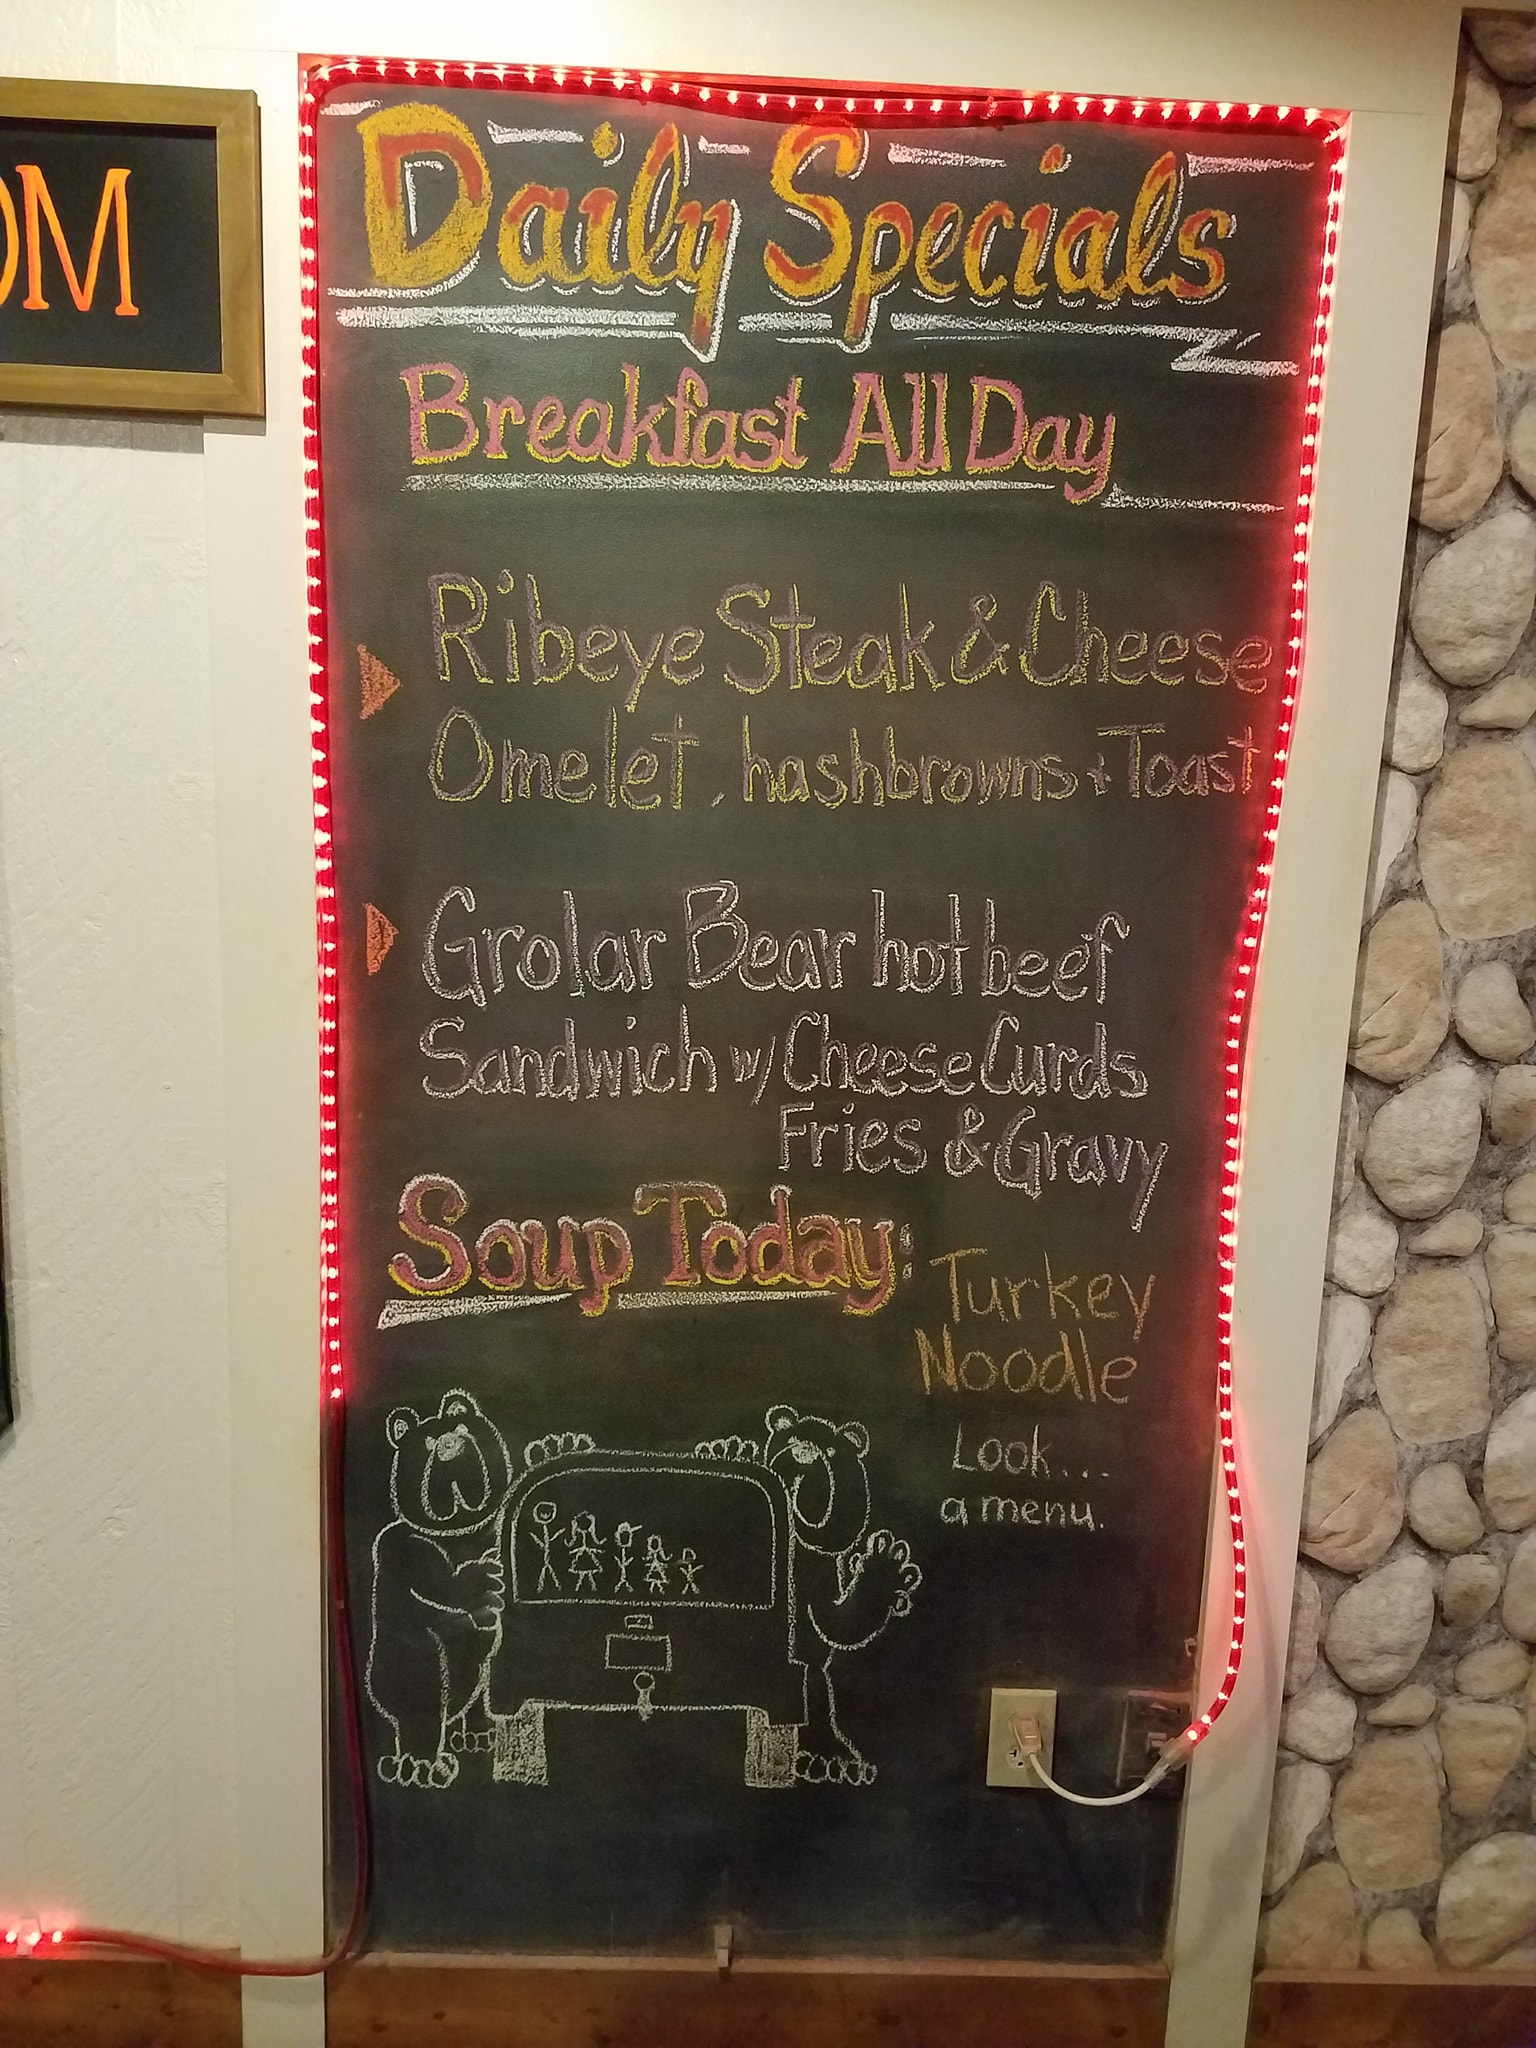 OM
Daily Specials
Breakfast All Day
Ribeye Steak & Cheese
Omelet, hashbrowns + Toast
Grolar Bear hot beef
Sandwich w/ Cheese Curds
Fries & Gravy
Soup Today:
Turkey
Noodle
Look...
a menu.